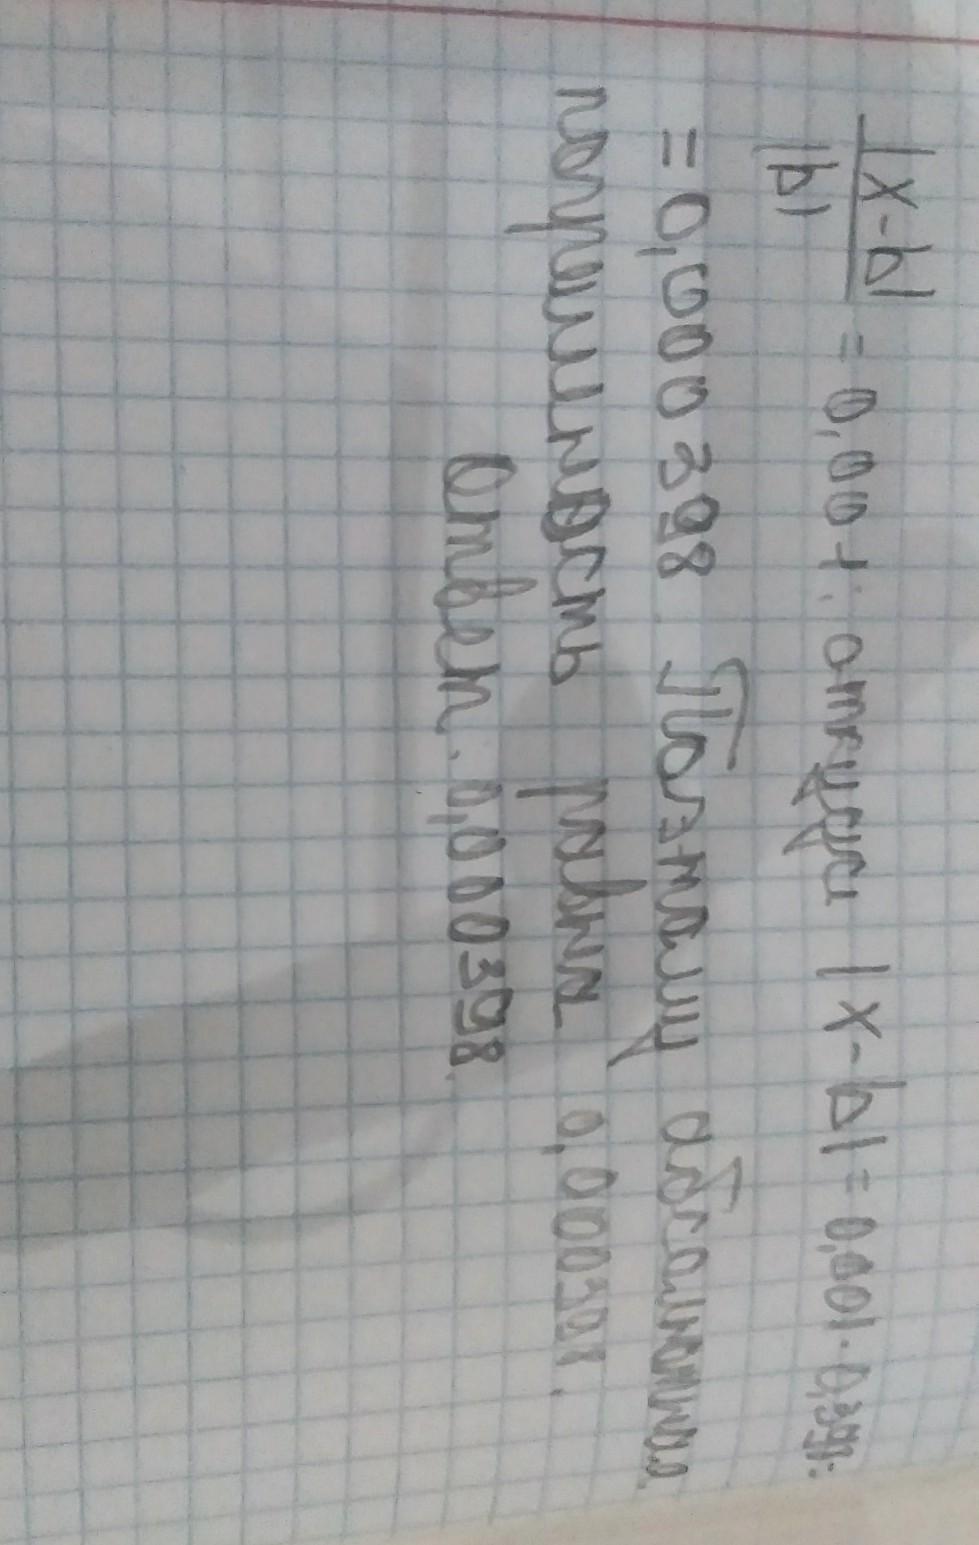 |x-b|
|b| = 0,001; откуда |x-b| = 0,001·0,398=
= 0,000398. Поэтому абсолютная
погрешность равна 0,000398.
Ответ. 0,000398.